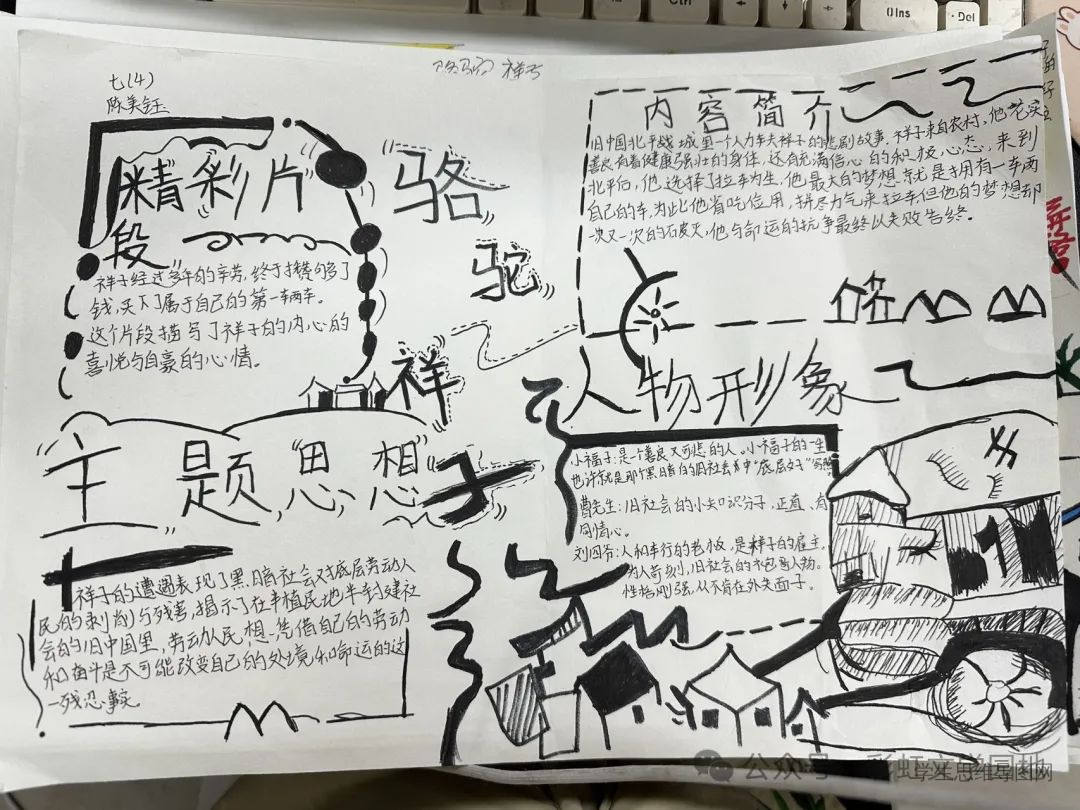 骆驼祥子
七(4)
陈美钰
精彩片
段
祥子经过多年的辛劳,终于攒够了
钱,买下了属于自己的第一辆车。
这个片段描写了祥子的内心的
喜悦与自豪的心情。
骆
驼
祥
子
内容简介
旧中国北平城里一个人力车夫祥子的悲剧故事。祥子来自农村,他老实
善良有着健康强壮的身体,还有充满信心的和积极心态,来到
北平后,他选择了拉车为生,他最大的梦想就是拥有一车两
自己的车,为此他省吃俭用,拼尽力气来拉车,但他的梦想却
一次又一次的破灭,他与命运的抗争最终以失败告终。
主题思想
祥子的遭遇表现了黑暗社会对底层劳动人
民的剥削与残害,揭示了在半殖民地半封建社
会的旧中国里,劳动人民,想凭借自己的劳动
和奋斗是不可能改变自己的处境和命运的这
一残忍事实
人物形象
小福子:是个善良又可悲的人。小福子的一生
也许就是那个黑暗的旧社会中底层女子
曹先生:旧社会的小知识分子,正直、有
同情心。
刘四爷:人和车行的老板,是祥子的雇主,
为人苛刻,旧社会的不包容人物。
性格刚强,从不肯在外失面子。
公众号